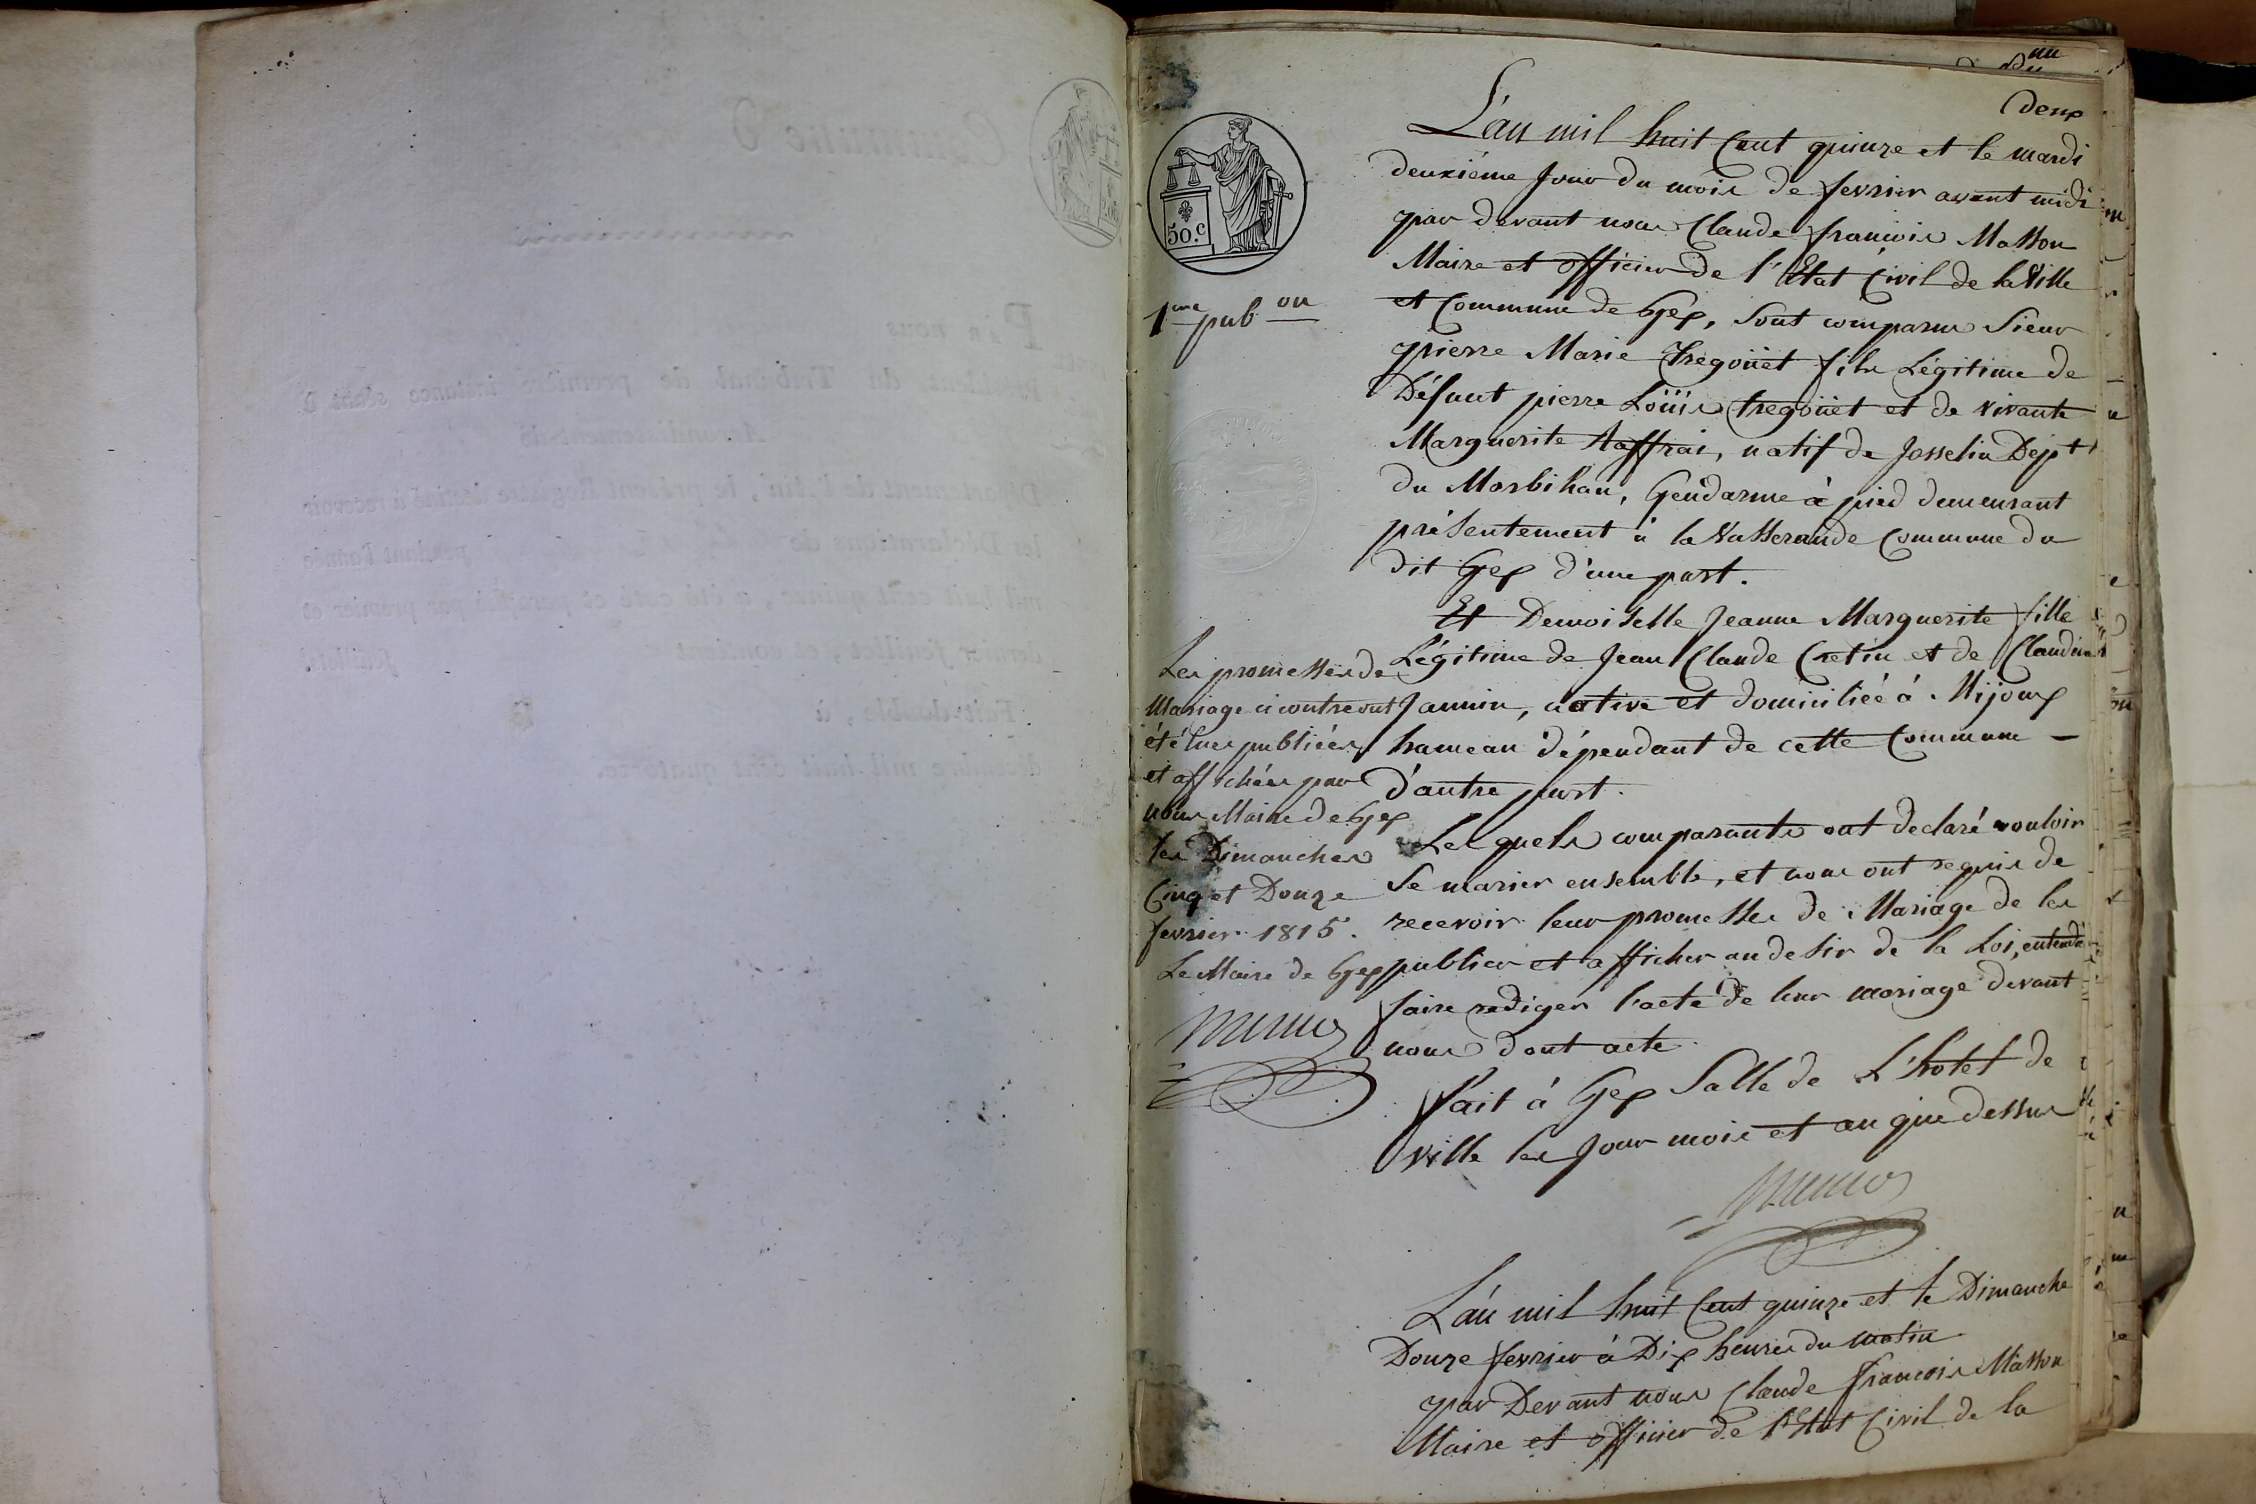 deux
50.c
1me pubon
L'an mil huit Cent quinze et le mardi
deuxiéme Jour du mois de fevrier avant midi
par devant nous Claude francois Masson
Maire et officier de l'Etat Civil de la Ville
et Commune de Gex, sont comparus Sieur
pierre Marie Tregoüet fils Légitime de
Défunt pierre Loüis tregoüet et de vivante
Marguerite, natif de Josselin Dépt
du Morbihan, Gendarme à pied demeurant
présentement à la Vasserande Commune du
dit Gex d'une part.
Et Demoiselle Jeanne Marguerite fille
Légitime de Jean Claude Cretin et de Claudine
Jannin, native et domiciliée à Mijoux
hameau dépendant de cette Commune
d'autre part.
Lesquels comparants ont declaré vouloir
se marier ensemble, et nous ont requis de
recevoir leur promesses de Mariage de les
publier et afficher au desir de la Loi, entendt
faire rediger l'acte de leur mariage devant
nous dont acte.
fait à Gex Salle de L'hotel de
ville les Jour mois et an que dessus
Les promesses de
Mariage ci contre ont
été lues publiées
et affichées par
nous Maire de Gex
les Dimanches
Cinq et Douze
fevrier 1815.
Le Maire de Gex
L'an mil huit Cent quinze et le Dimanche
Douze fevrier à Dix heures du matin
par Devant nous Claude francois Masson
Maire et officier de l'Etat Civil de la